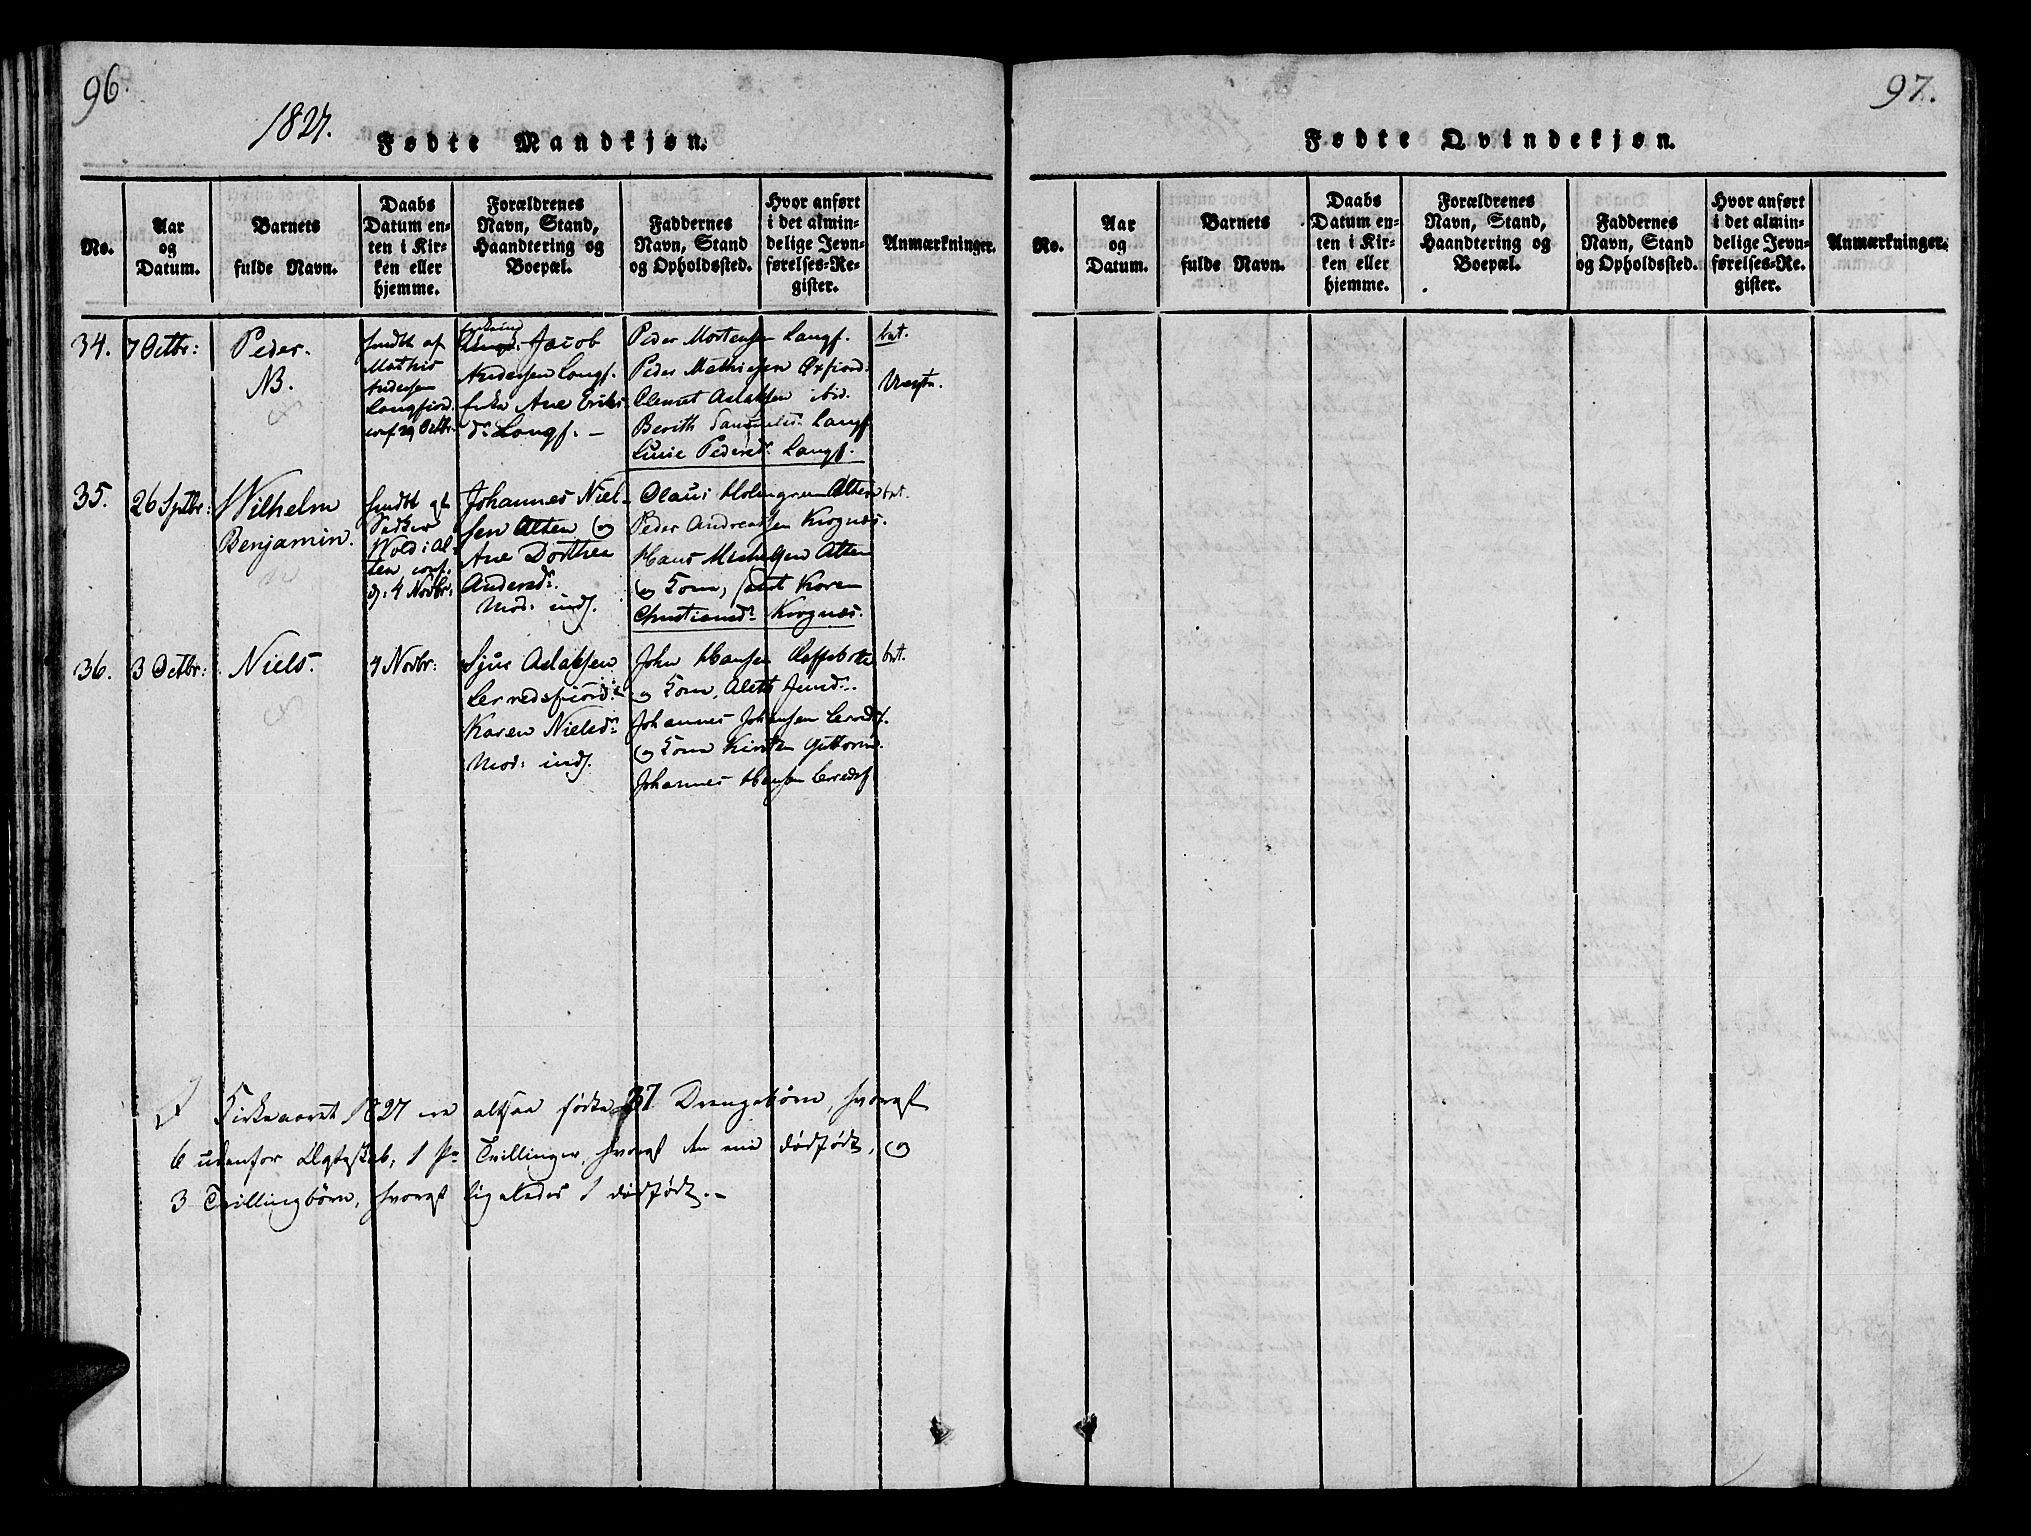 96.
1827.
Fødte Mandkjøn.
No.
Aar
og
Datum.
Barnets
fulde Navn.
Daabs
Datum en-
ten i Kir-
ken eller
hjemme.
Forældrenes
Navn, Stand,
Haandtering og
Boepæl.
Faddernes
Navn, Stand
og Opholdssted.
Hvor anført
i det almin-
delige Jevn-
førelses-Re-
gister.
Anmærkninger.
34.
7 Octbr:
Peder.
NB.
hmdt af
Mathis
Andersen
Langfiord.
conf 29 Octbr.
Jacob
Andersen Langf.
Ane Eriks
dr. Langf. –
Peder Mortensen Langf.
Peder Mathiesen Øxfiord.
Clemet Aslaksen ibid.
Berith Samuelsd: Langf
Pedersdr. Langf.
bnt.
35.
26 Sptbr:
Wilhelm
Benjamin.
hmdt af
Wold i Al-
ten conf.
d: 4 Novbr:
Johannes Niel-
sen Alten og
Ane Dorthea
Andersdr:
Mod: inds.
Olaus Holmgren Alten
Peder Andreassen Krognæs.
Hans Michelsen Alten
og Kone, samt Karen
Christiansdr: Krognæs.
bnt.
36.
3 Octbr:
Niels.
4 Novbr:
Aslaksen
Lerredsfiord:
Karen Nielsdr:
Mod: inds.
John Hansen
og Kone, Aleth
Johannes Johansen Leredsf.
og Kone Kirsten
Johannes Hansen Leredsf.
bnt.
I Kirkeaaret 1827 ere altsaa fødte 37 Drengebørn, hvoraf
6 udenfor Ægteskab, 1 Pr Tvillinger, hvoraf den ene dødfødt, og
3 Tvillingbørn, hvoraf ligeledes 1 dødfødt. –
97.
Fødte Qvindekjøn.
No.
Aar
og
Datum.
Barnets
fulde Navn.
Daabs
Datum en-
ten i Kir-
ken eller
hjemme.
Forældrenes
Navn, Stand,
Haandtering og
Boepæl.
Faddernes
Navn, Stand
og Opholdssted.
Hvor anført
i det almin-
delige Jevn-
førelses-Re-
gister.
Anmærkninger.